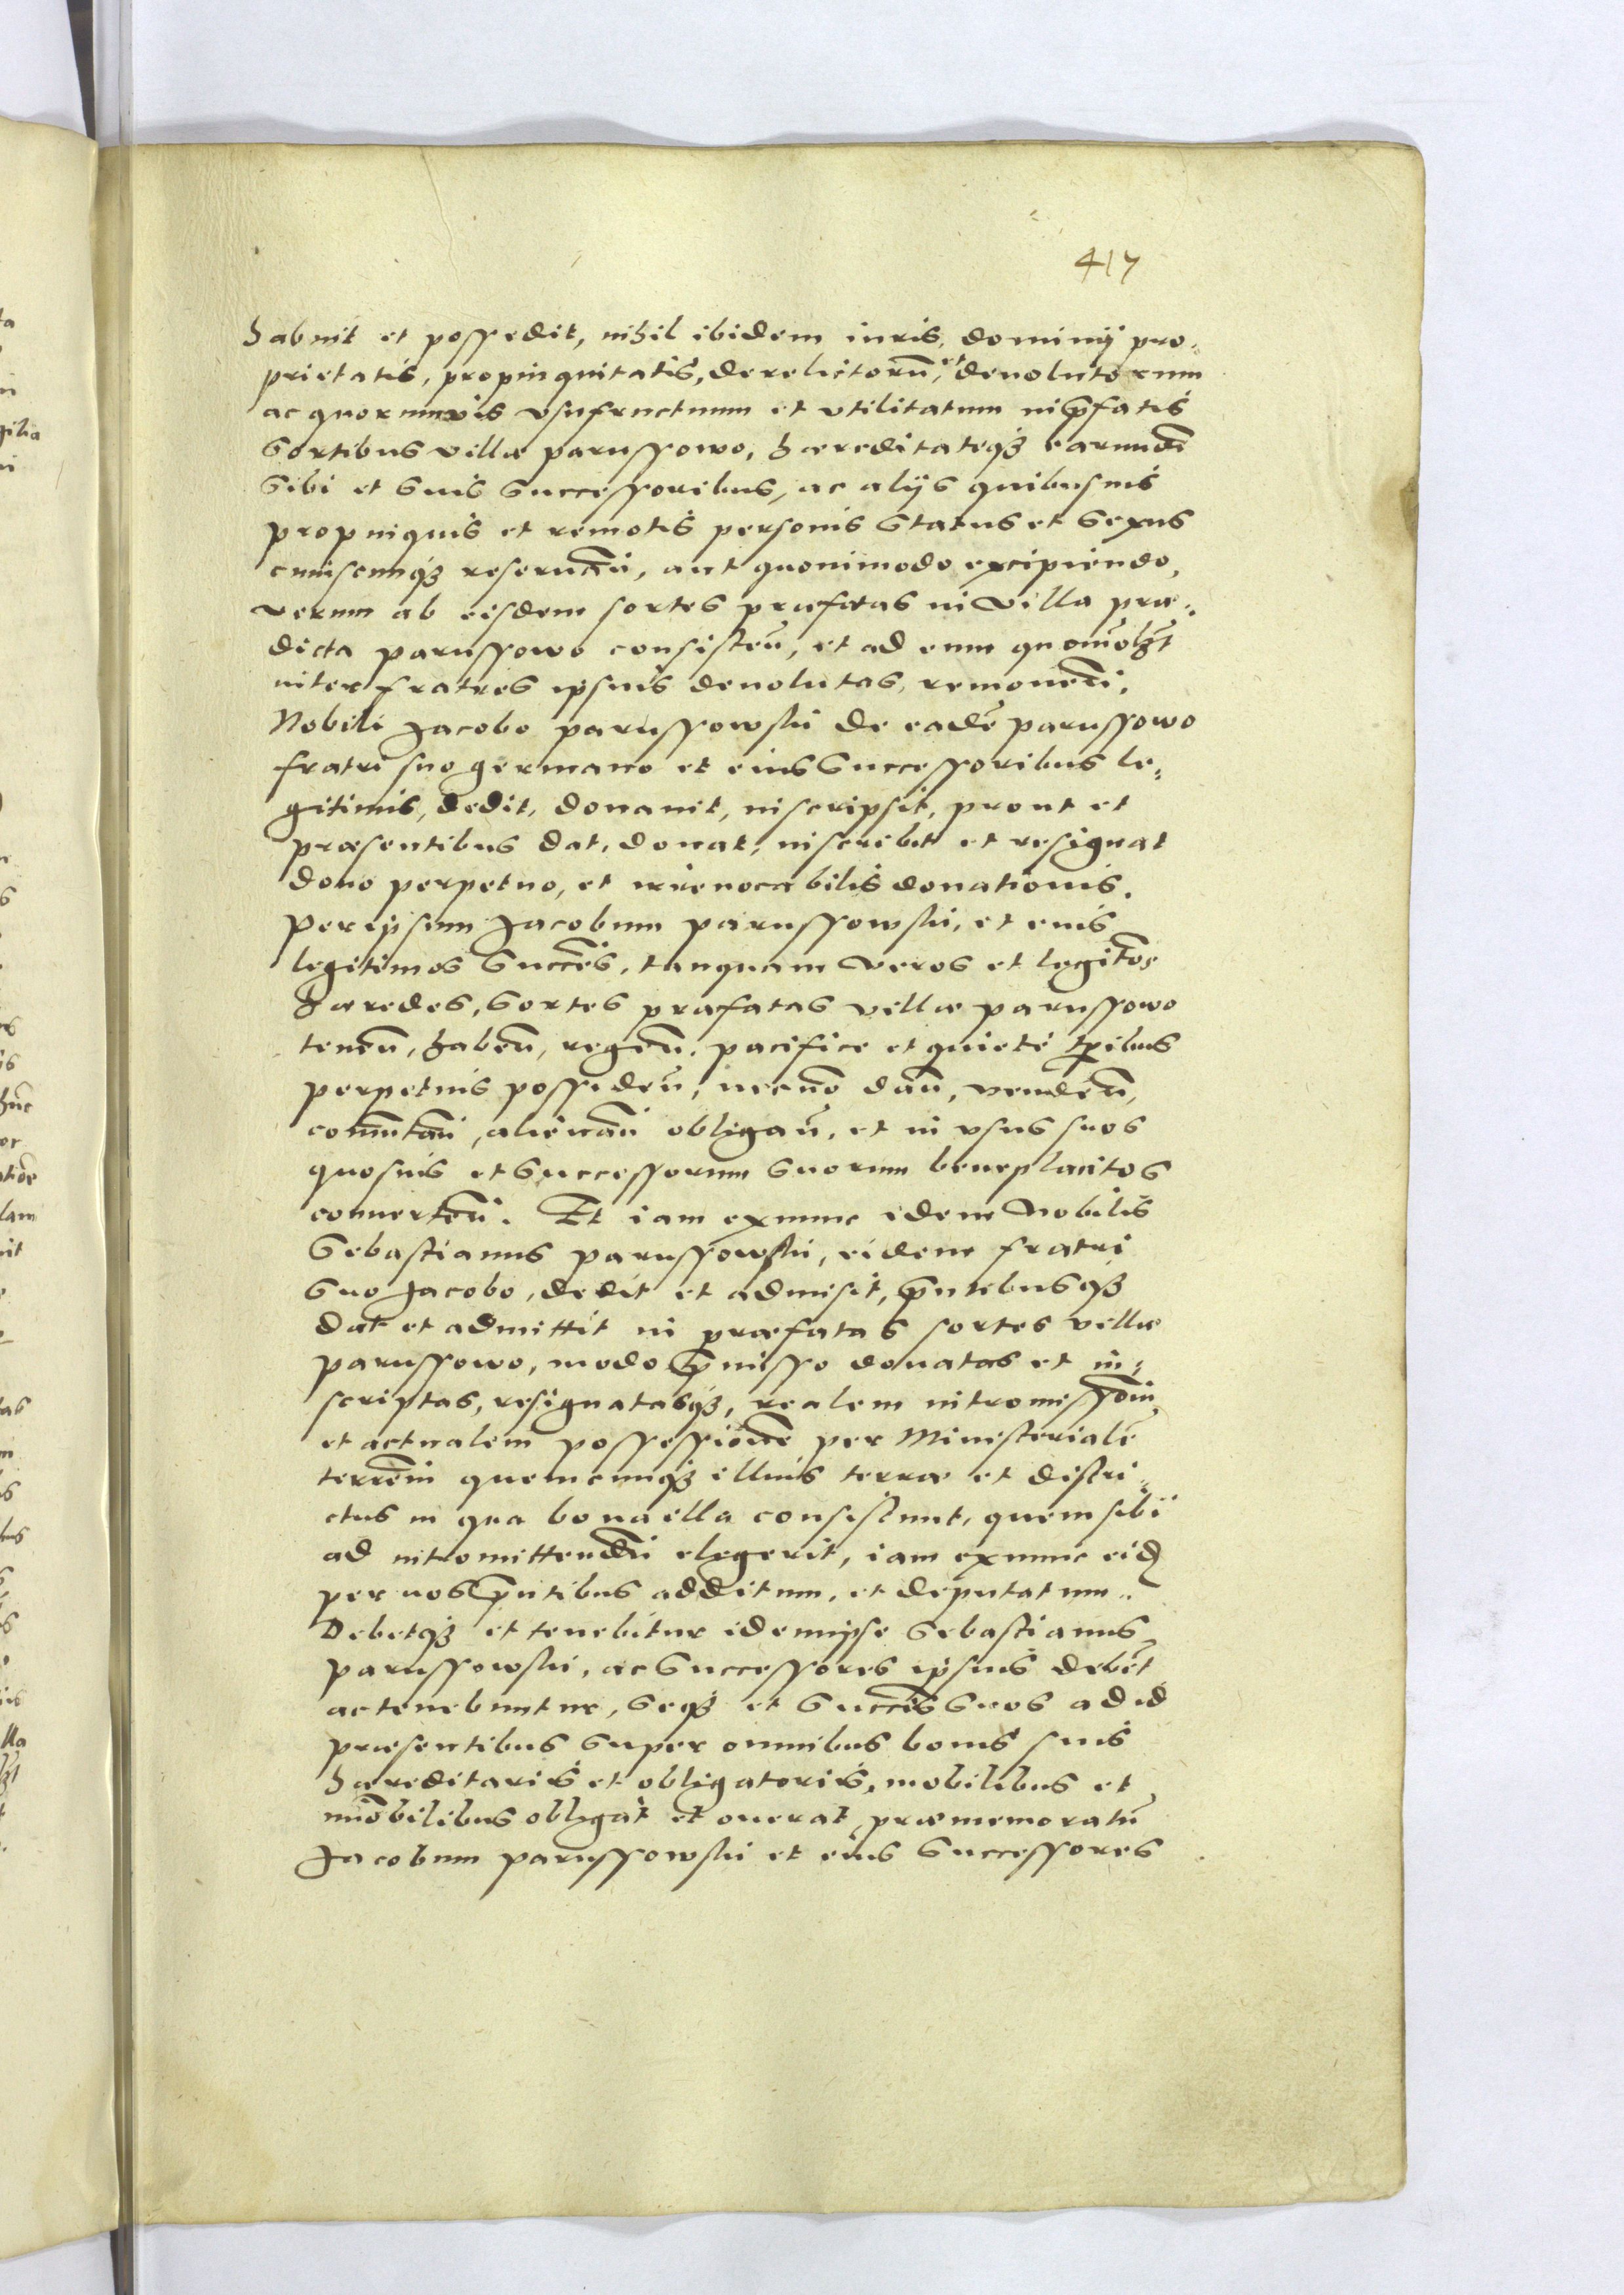 417
habuit et possedit, nihil ibidem iuris, dominij pro-
prietatis, propinquitatis, derelictorū, et deuolutorum
ac quorumuis vsufructuum et vtilitatum in p̄fatis
Sortibus villæ parussowo, hæreditateqꝫ earundē
Sibi et Suis Successoribus, ac alijs quibusuis
propinquis et remotis personis Status et Sexus
cuiuscunqꝫ reseruan̄, aut quouimodo excipiendo,
verum ab eisdem sortes præfatas in villa præ-
dicta parussowo consisteñ, et ad eum quomo̅lꝫt
inter fratres ipsius deuolutas, remouen̄.
Nobili Jacobo parussowski de eadē parussowo
fratri suo germano et eius Successoribus le-
gitimis, dedit, donauit, inscripsit, prout et
præsentibus dat, donat, inscribit et resignat
dono perpetuo, et irreuocabilis donationis.
Per ipsum Jacobum parussowski, et eius
legitimos Succēs, tanquam veros et legitīos
hæredes, Sortes præfatas villæ parussowo
teneñ, habeñ, regeñ, pacifice et quiete tp̄ribus
perpetuis possideñ, necnō dañ, vendeñ,
com̄utañ, alienañ obligañ, et in vsus suos
quosuis et Successorum Suorum beneplacitos
conuerteñ. Et iam exnunc idem Nobilis
Sebastianus parussowski, eidem fratri
Suo Jacobo, dedit et admisit, p̄ntibusqꝫ
dat et admittit in præfatas sortes villæ
parussowo, modo p̄misso donatas et in-
scriptas, resignatasqꝫ, realem intromissōm
et actualem possessionē per Ministerialē
terrēm quemcunqꝫ illius terræ et distri-
ctus in qua bona illa consistunt, quem sibi
ad intromittendū elegerit, iam exnunc eid
per nos p̄ntibus additum, et deputatum.
Debetqꝫ et tenebitur idem ipse Sebastianus
parussowski, ac Successores ipsius debēt
ac tenebuntur, Seqꝫ et Succēs Suos ad id
præsentibus Super omnibus bonis suis
hæreditariis et obligatoriis, mobilibus et
im̄obilibus obligat et onerat, præmemoratū
Jacobum parussowski et eius Successores